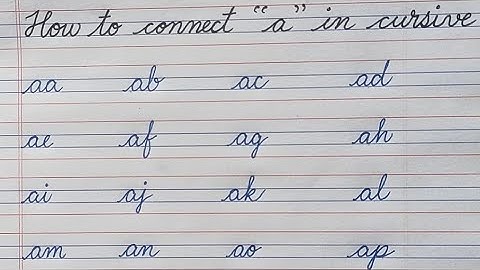 How to connect "a" in cursive
aa ab ac ad
ae af ag ah
ai aj ak al
am an ao ap